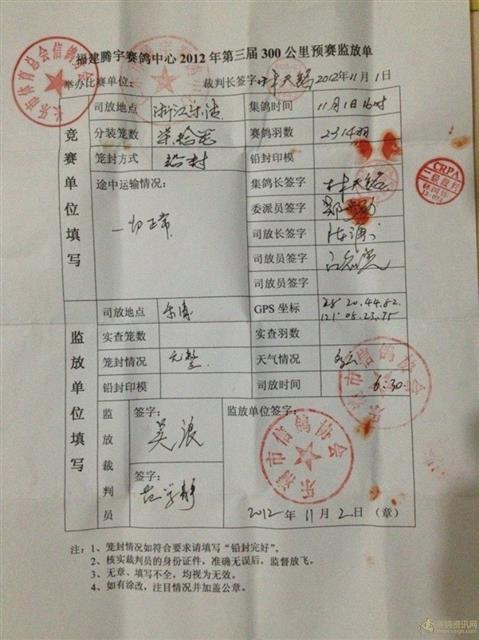 福建腾宇赛鸽中心 2012 年第三届 300 公里预赛监放单
举办比赛单位： 裁判长签字 林天銘 2012年11月1日
长乐市体育总会信鸽协会
竞赛单位填写
司放地点 浙江乐清 集鸽时间 11月1日16时
分装笼数 赛鸽羽数 2314羽
笼封方式 铅封 铅封印模
途中运输情况： 一切正常
集鸽长签字 林天銘
委派员签字
司放长签字
司放员签字
司放员签字
CRPA
二级裁判
监放单位填写
司放地点 乐清 GPS 坐标 28:20.44.82 121:08.23.75
实查笼数 实查羽数
笼封情况 完整 天气情况 多云
铅封印模 司放时间 6:30
监放裁判员
签字： 吴浪
签字：
监放单位签字：
乐清市信鸽协会
乐清市信鸽协会
2012年 11 月 2 日 （章）
注：1、笼封情况如符合要求请填写“铅封完好”。
2、核实裁判员的身份证件，准确无误后，监督放飞。
3、无章、填写不全，均视为无效。
4、如有涂改，注目情况并加盖公章。
信鸽资讯网